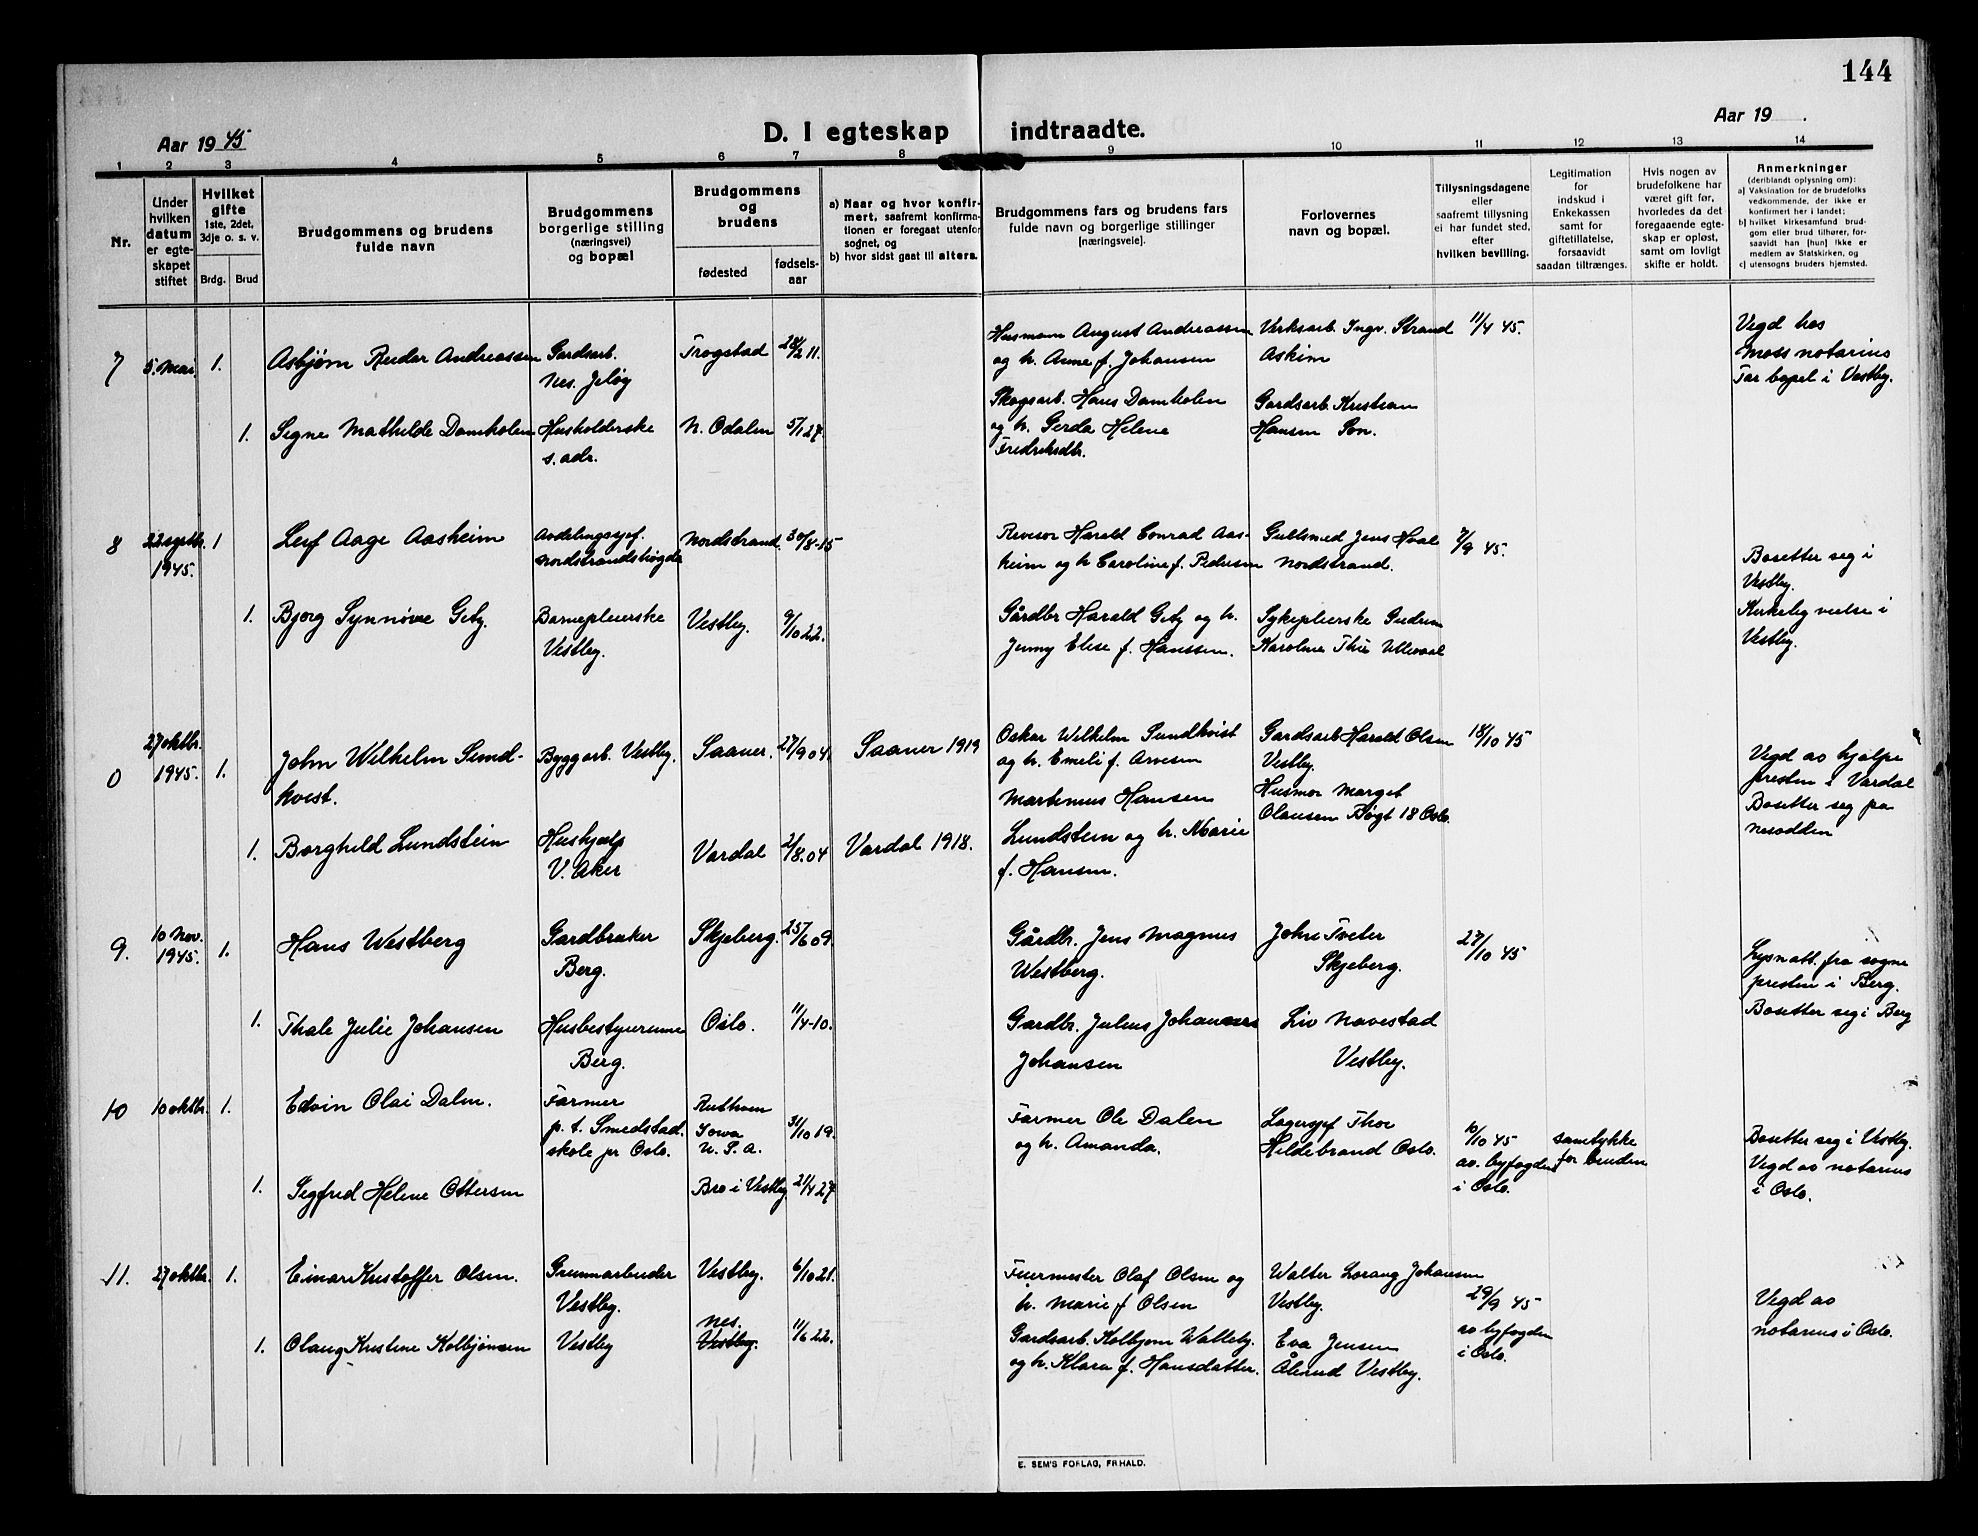 144
Aar 1945
D. I egteskap indtraadte.
Aar 19   .
1 2 3 4 5 6 7 8 9 10 11 12 13 14
Nr.
Under
hvilken
datum
er egte-
skapet
stiftet
Hvilket
gifte
1ste, 2det,
3dje o. s. v.
Brdg. Brud
Brudgommens og brudens
fulde navn
Brudgommens
borgerlige stilling
(næringsvei)
og bopæl
Brudgommens
og
brudens
fødested
fødsels-
aar
a) Naar og hvor konfir-
mert, saafremt konfirma-
tionen er foregaat utenfor
sognet, og
b) hvor sidst gaat til alters.
Brudgommens fars og brudens fars
fulde navn og borgerlige stillinger
[næringsveie].
Forlovernes
navn og bopæl.
Tillysningsdagene
eller
saafremt tillysning
ei har fundet sted,
efter
hvilken bevilling.
Legitimation
for
indskud i
Enkekassen
samt for
giftetillatelse,
forsaavidt
saadan tiltrænges.
Hvis nogen av
brudefolkene har
været gift før,
hvorledes da det
foregaaende egte-
skap er opløst,
samt om lovligt
skifte er holdt.
Anmerkninger
(deriblandt oplysning om):
a) Vaksination for de brudefolks
vedkommende, der ikke er
konfirmert her i landet;
b) hvilket kirkesamfund brud-
gom eller brud tilhører, for-
saavidt han [hun] ikke er
medlem av Statskirken, og
c) utensogns bruders hjemsted.
7 5. mai 1. Asbjørn Reidar Andreassen
Gardsarb.
Nes. Jeløy
Trøgstad 28/2 11.
Husmann August Andreassen
og h. Anne f. Johansen
Verksarb. Ingv. Strand
Askim
11/4 45.
Vegd hos
Moss notarius
Far bopel i Vestby.
1. Signe Mathilde Damholen
Husholderske
s. adr.
N. Odalen 5/1 27.
Skogsarb. Hans Damholen
og h. Gerda Helene
Fredriksdtr.
Gardsarb. Kristian
Hansen Son.
8 22 septbr.
1945. 1 Leif Aage Aasheim
Avdelingssjef.
Nordstrandshøgda
Nordstrand. 30/8-15
Revisor Harald Conrad Aas-
heim og h Caroline f. Pedersen
Gullsmed Jens Hval
Nordstrand.
7/9 45.
Bosetter seg i
Vestby.
Kirkelig vielse i
Vestby.
1. Bjørg Synnøve Getz.
Barnepleierske
Vestby.
Vestby. 9/10 22.
Gårdbr Harald Getz og h.
Jenny Elise f. Hanssen.
Sykepleierske Gudrun
Karoline Thiis Ullevaal
0 27 oktbr.
1945. 1. John Wilhelm Sund-
kvist.
Byggarb. Vestby. Saaner. 27/9 04. Saaner 1919
Oskar Wilhelm Sundkvist
og h. Emeli f. Arnesen
Gardsarb Harald Olsen
Vestby.
18/10 45
Vegd av hjelpe
presten i Vardal
Bosetter seg på
Nesodden
1. Borghild Lundstein
Hushjelp
V. Aker
Vardal 2/8.04 Vardal 1918.
Martinius Hansen
Lundstein og h. Marie
f. Hansen.
Husmor Marget
Olausen Bøigt 18 Oslo.
9. 10 nov.
1945. 1. Hans Westberg
Gardbruker
Berg.
Skjeberg. 25/6 09.
Gårdbr. Jens Magnus
Westberg.
John Tveter
Skjeberg.
27/10 45
Lysn att. fra sogne
presten i Berg.
Bosetter seg i Berg
1. Thale Julie Johansen
Husbestyrerinne
Berg.
Oslo. 11/4-10.
Gardbr. Julius
Johansen
Liv Navestad
Vestby.
10 10 oktbr. 1. Edvin Olai Dalen.
Farmer
p. t. Smedstad.
skole pr Oslo.
Ruthven
Iowa
U. S. A.
31/10 19.
Farmer Ole Dalen
og h. Amanda.
Lagersjef Thor
Hildebrand Oslo.
6/10 45
av. byfogden
i Oslo.
samtykke
for bruden
Bosetter seg i Vestby.
Vegd av notarius
i Oslo.
1. Sigfred Helene Ottersen
Bro i Vestby 21/4 27
11. 27 oktbr. 1. Einar Kristoffer Olsen.
Grunnarbeider
Vestby.
Vestby. 6/10 21.
Fuermester Olaf Olsen og
h. Marie f Olsen
Walter Lorang Johansen
Vestby.
29/9 45
av byfogden
i Oslo.
Vegd av
notarius i Oslo.
1. Olaug Kristine Kolbjørnsen
Vestby
Nes.
Vestby. 11/6 22.
Gardsarb. Kolbjørn Walleby.
og h. Klara f. Hansdatter.
Eva Jensen
Ålerud Vestby.
E. SEM'S FORLAG, FRHALD.